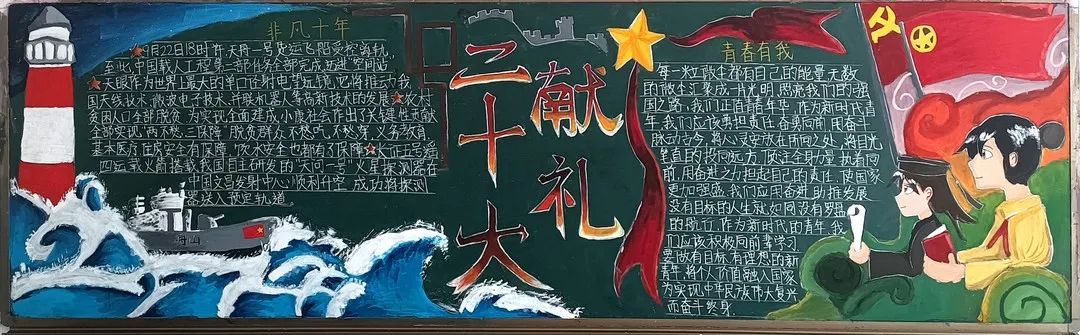 非凡十年
9月22日18时许天舟一号货运飞船受控离轨
至此中国载人工程第二部任务全部完成迈进"空间站"
天眼作为世界上最大的单口径射电望远镜它将推动我
国天线技术、微波电子技术、并联机器人等高新技术的发展 农村
贫困人口全部脱贫为实现全面建成小康社会作出了关键性贡献
全部实现"两不愁三保障"脱贫群众不愁吃、不愁穿、义务教育、
基本医疗住房安全有保障饮水安全也都有了保障 长征五号遥
四运载火箭搭载我国自主研发的"天问一号"火星探测器在
中国文昌发射中心顺利升空成功将探测
器送入预定轨道
海山
二十大
献礼
青春有我
每一粒微尘都有自己的能量无数
的微尘汇聚成一片光明,照亮我们的强
国之路,我们正值青年华,作为新时代青
年,我们应该勇担责任奋勇向前,用奋斗
展示古今,将心灵安放在所向之处,将目光
坚直的投向远方,使尽全身力量,执着向
前,用奋进之力担起自己的责任,使国家
更加强盛,我们应用奋进,助推发展
没有目标的人生就如同没有罗盘
的航行,作为新时代的青年,我
们应该积极向前辈学习
要做有目标有理想的新
青年,将个人价值融入国家
为实现中华民族伟大复兴
而奋斗终身